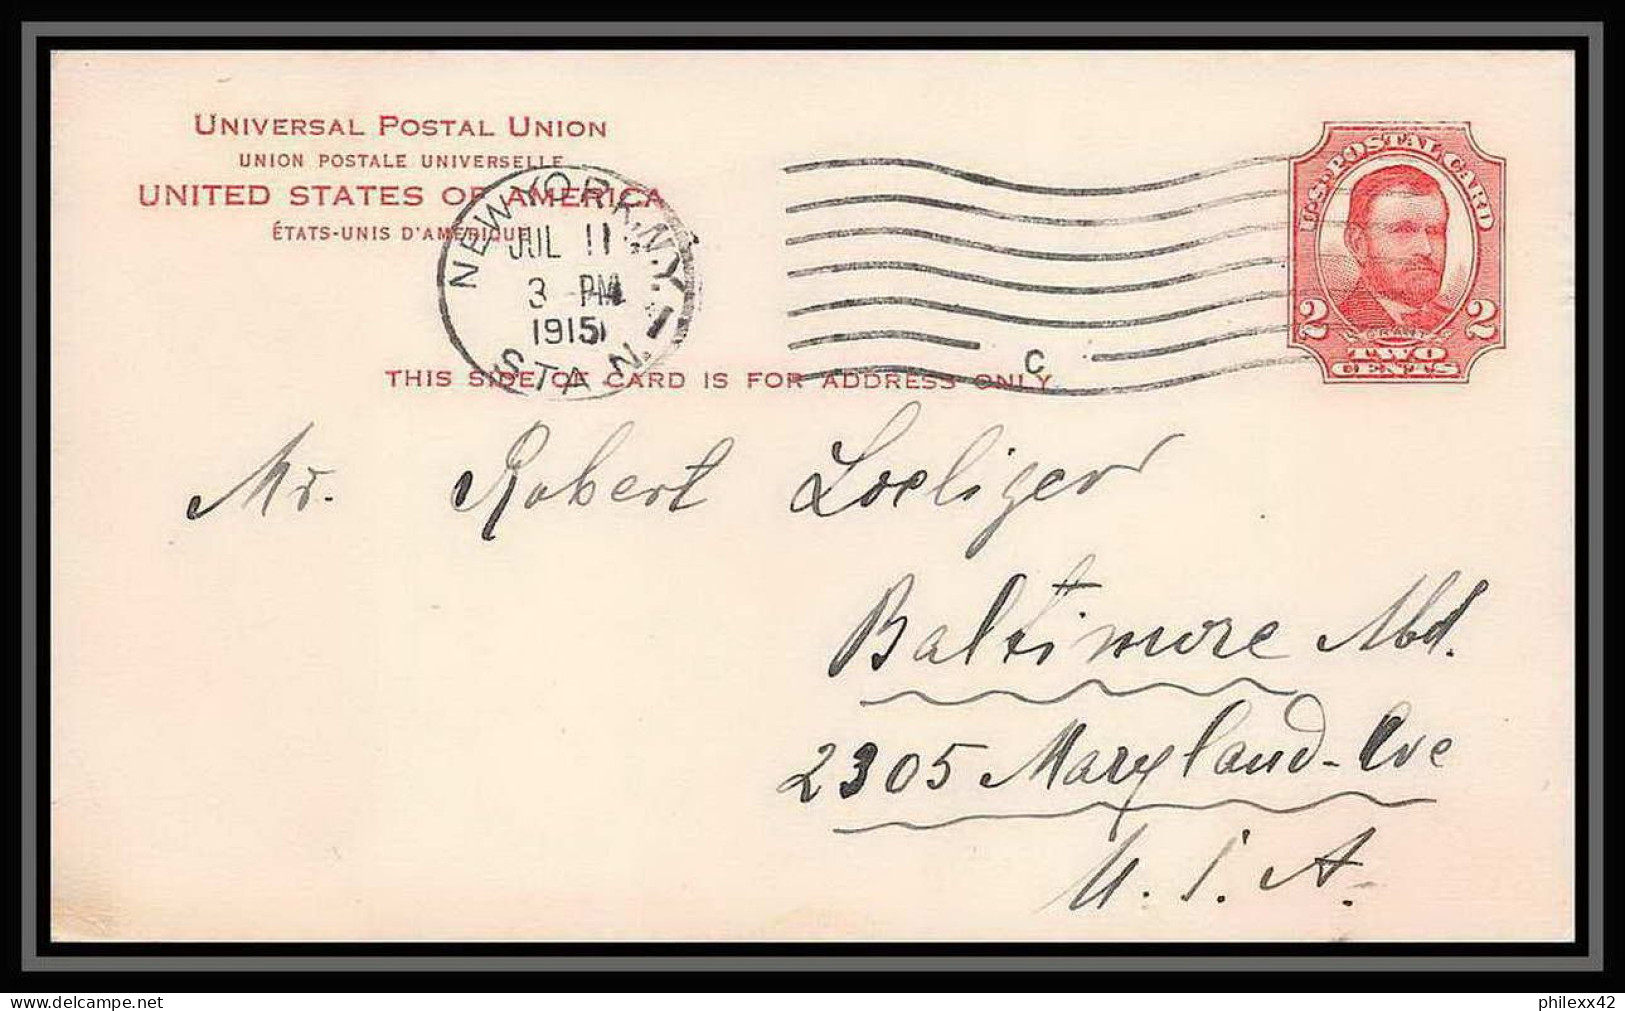 UNIVERSAL POSTAL UNION
UNION POSTALE UNIVERSELLE
UNITED STATES OF AMERICA
ÉTATS-UNIS D'AMÉRIQUE
NEW YORK, N.Y.
JUL 11
3 - PM
1915
STA N.
C
U.S. POSTAL CARD
2 2
GRANT
TWO
CENTS
THIS SIDE OF CARD IS FOR ADDRESS ONLY
Mr. Robert Loeliger
Baltimore Md.
2305 Maryland-Ave
U.S.A.
philexx42